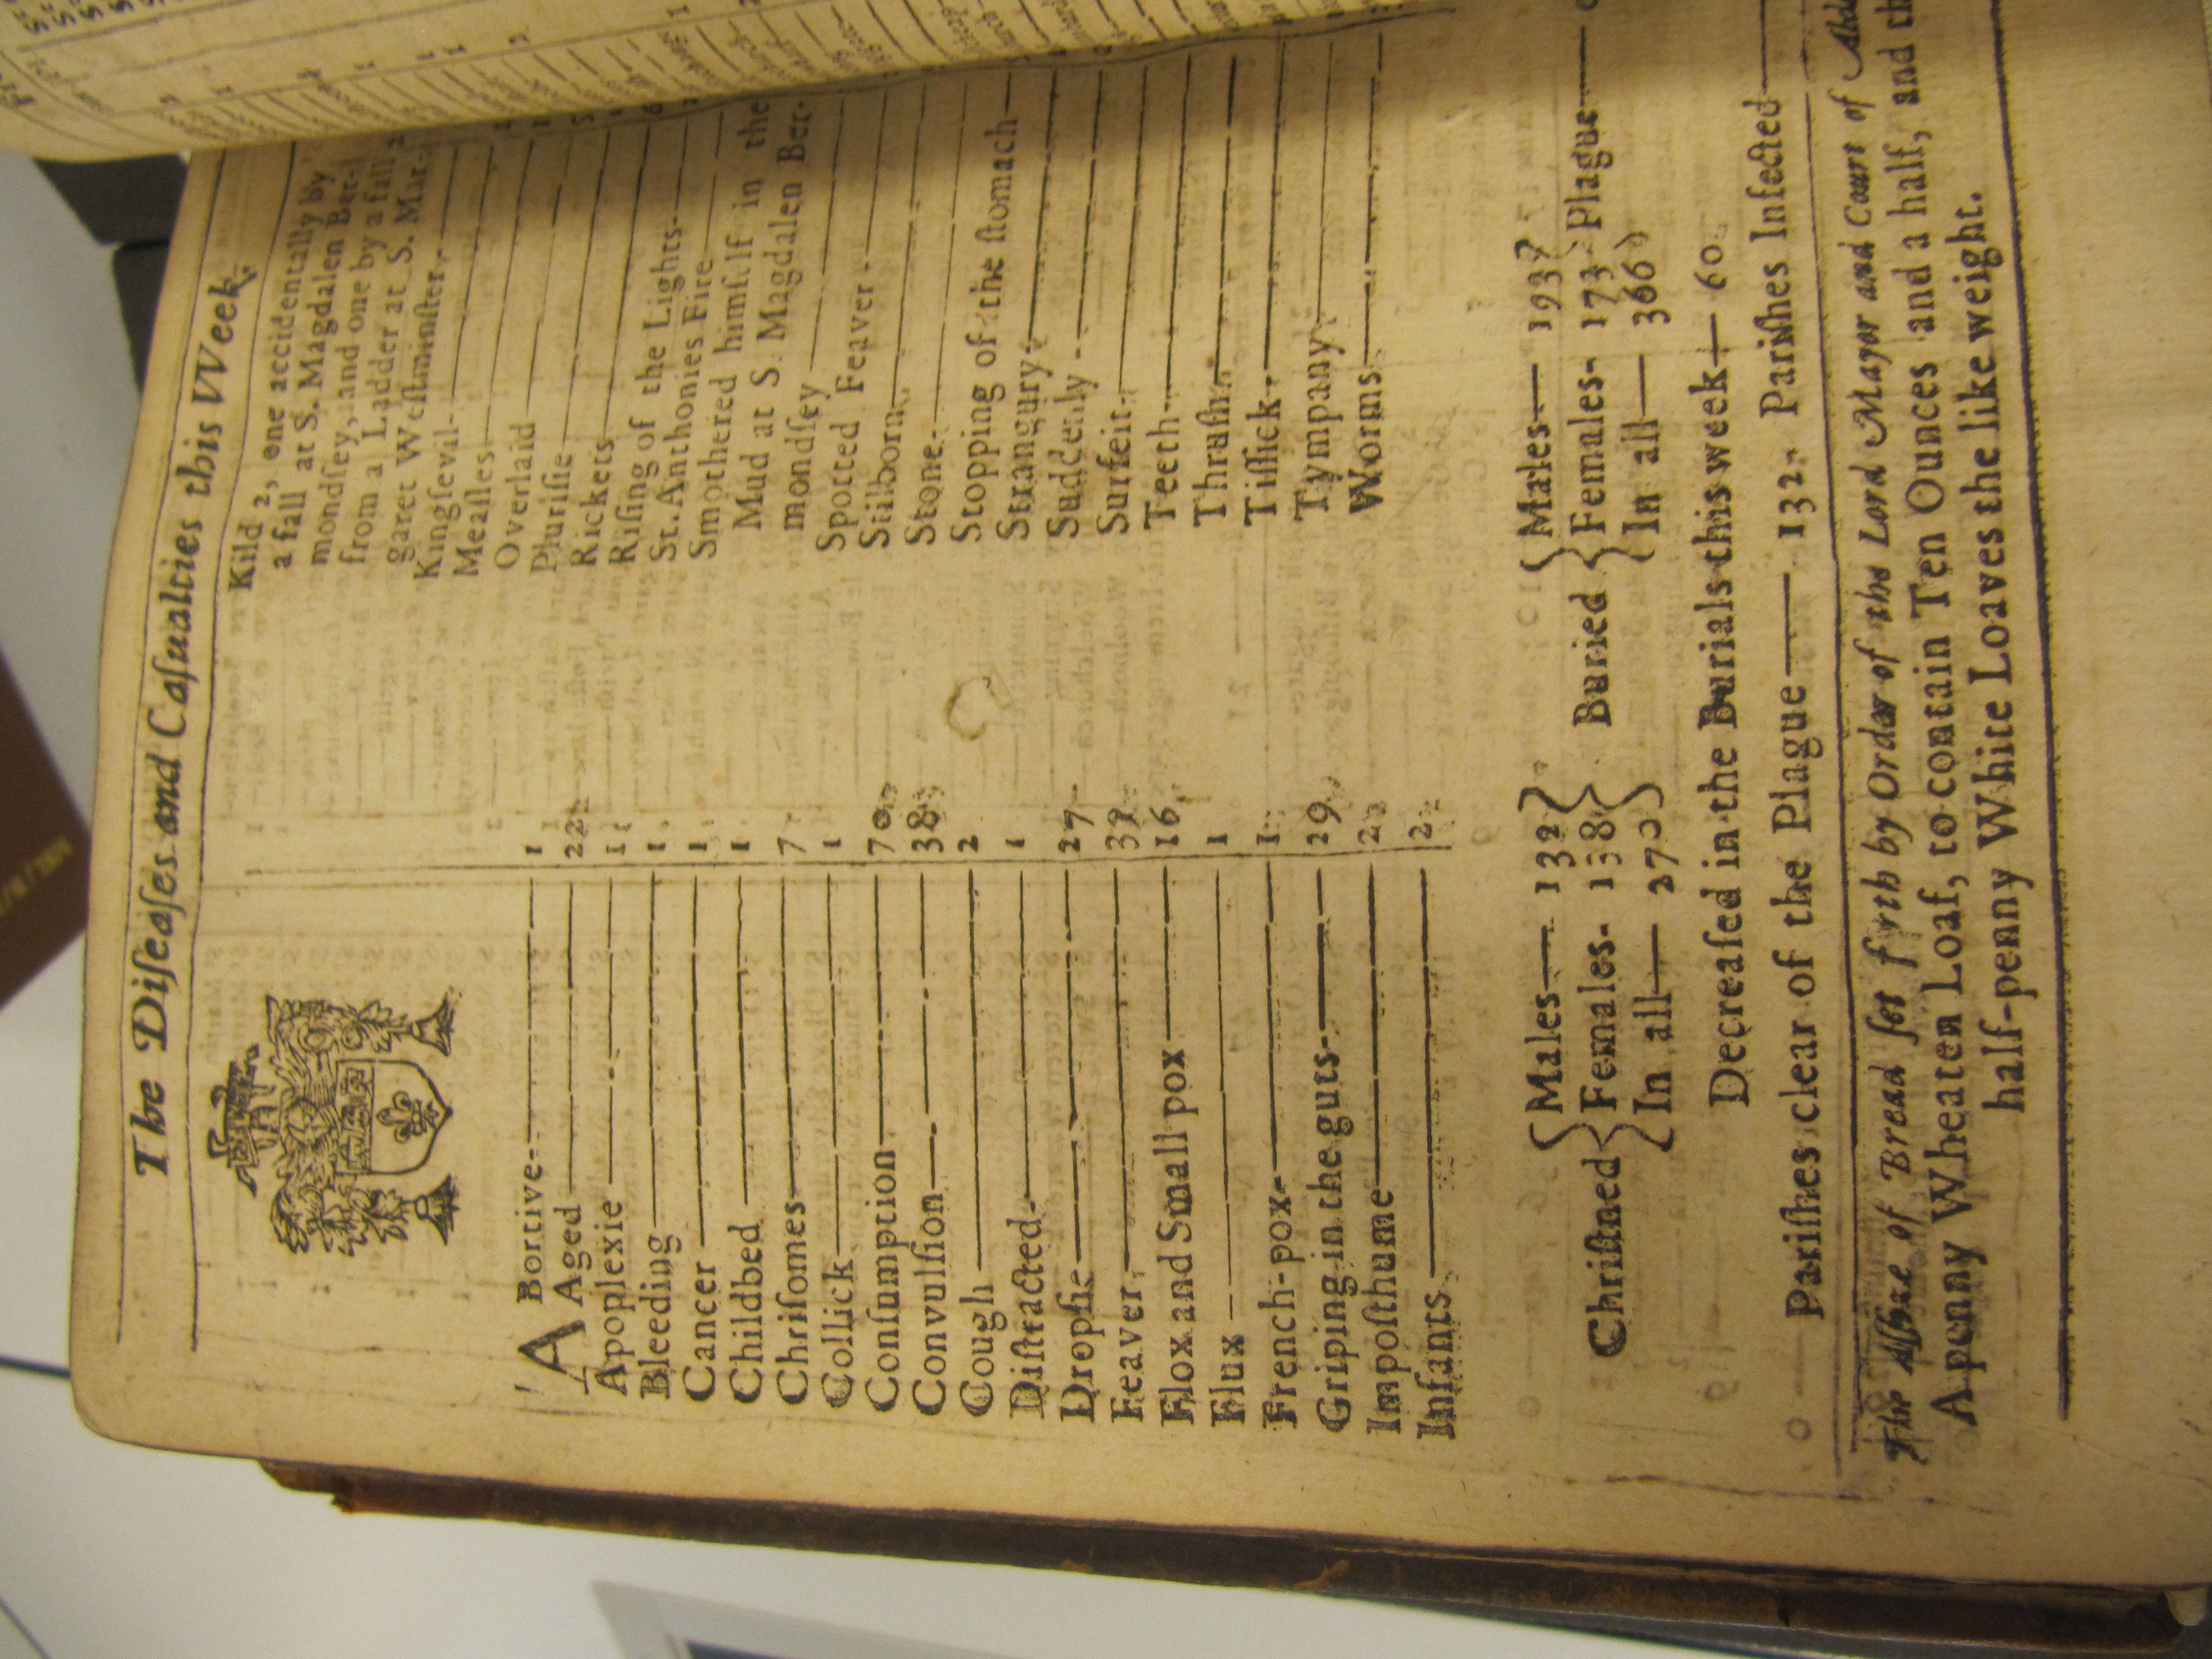 The Diſeaſes and Caſualties this Week.
ABortive— 1
Aged— 22
Apoplexie— 1
Bleeding— 1
Cancer— 1
Childbed— 1
Chriſomes— 7
Collick— 1
Conſumption— 70
Convulſion— 38
Cough— 2
Diſtracted— 1
Dropſie— 27
Feaver— 39
Flox and Small pox— 16
Flux— 1
French-pox— 1
Griping in the guts— 29
Impoſthume— 2
Infants— 2
Kild 2, one accidentally by
a fall at S. Magdalen Ber-
mondſey, and one by a fall 2
from a Ladder at S. Mar-
garet Weſtminſter
Kingſevil—
Meaſles—
Overlaid—
Pluriſie—
Rickets—
Riſing of the Lights— 6
St. Anthonies Fire—
Smothered himſelf in the
Mud at S. Magdalen Ber-
mondſey—
Spotted Feaver—
Stilborn—
Stone—
Stopping of the ſtomach—
Strangury—
Suddenly—
Surfeit—
Teeth—
Thruſh—
Tiſſick—
Tympany—
Worms—
Chriſtned { Males— 132 Females— 138 In all— 270 } Buried { Males— 193 Females— 173 In all— 366 } Plague—
Decreaſed in the Burials this week— 60
Pariſhes clear of the Plague— 132. Pariſhes Infected—
The Aſſize of Bread ſet forth by Order of the Lord Mayor and Court of
A penny Wheaten Loaf, to contain Ten Ounces and a half, and
half-penny White Loaves the like weight.